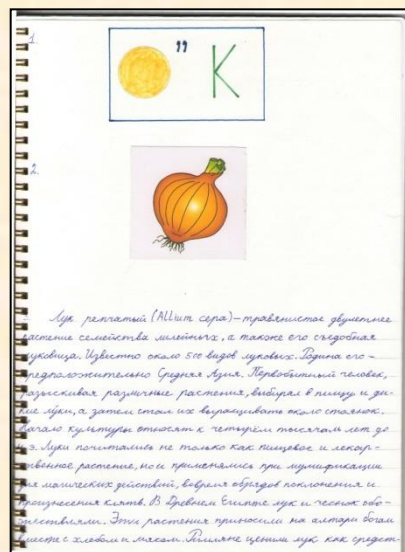 1.
" К
2.
Лук репчатый (Allium сера) – травянистое двулетнее
растение семейства лилейных, а также его съедобная
луковица. Известно около 500 видов луковых. Родина его –
предположительно Средняя Азия. Первобытный человек,
разыскивая различные растения, выбирал в пищу и ди-
кие луки, а затем стал их выращивать около стоянок.
Начало культуры относят к четырём тысячам лет до
н.э. Луки почитались не только как пищевое и лекар-
ственное растение, но и применялись при мумификации
для магических действий, вовремя обрядов поклонения и
произнесения клятв. В Древнем Египте лук и чеснок обо-
жествляли. Эти растения приносили на алтари богам
вместе с хлебом и мясом. Римляне ценили лук как средст-